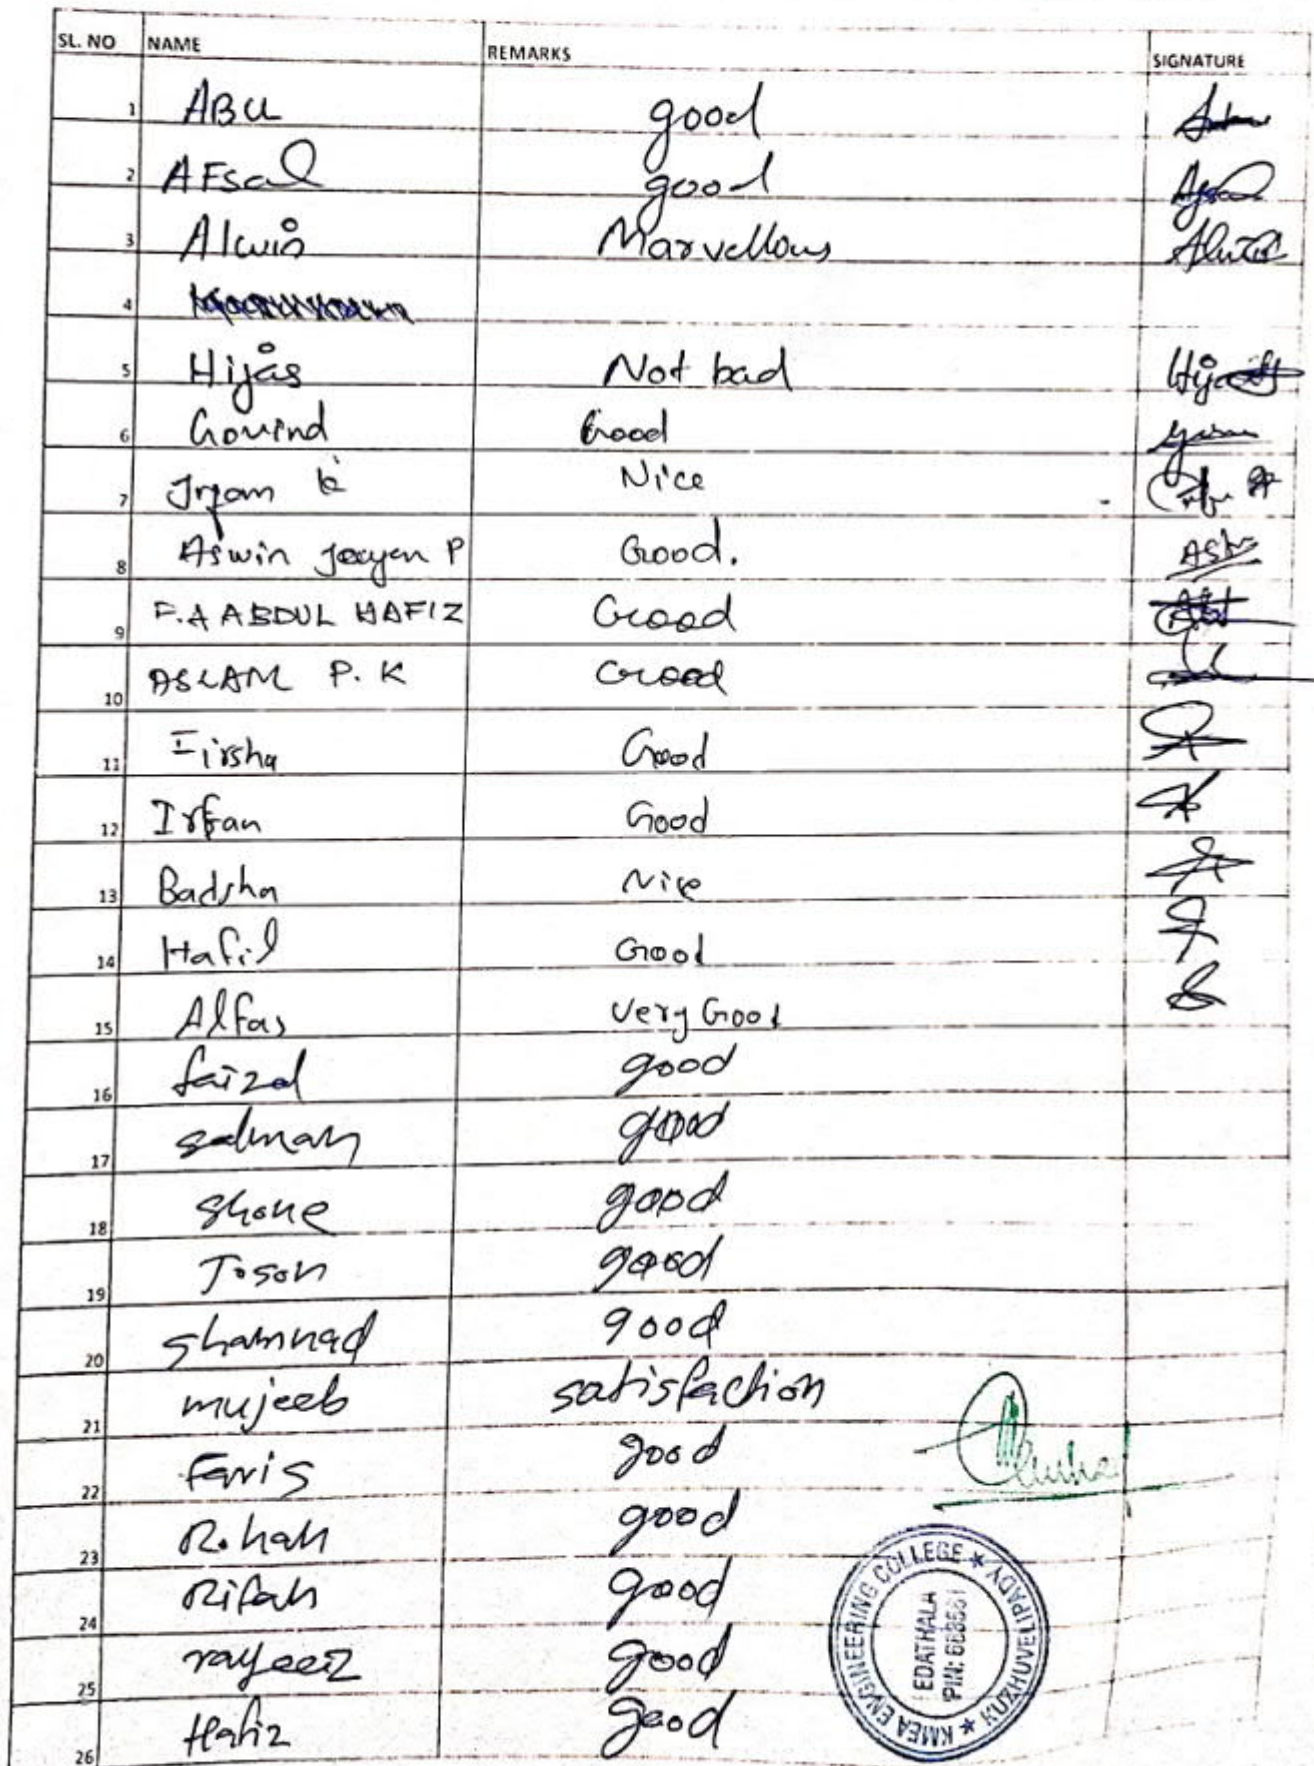 SL. NO NAME REMARKS SIGNATURE
1 ABU good
2 AFsal good Afsal
3 Alwin Marvellous Alwin
4
5 Hijas Not bad Hijas
6 Govind Good
7 Irfan k Nice
8 Aswin P Good.
9 F.A ABDUL HAFIZ Good
10 ASLAM P. K Good
11 Firsha Good
12 Irfan Good
13 Badsha Nice
14 Hafil Good
15 Alfas Very Good
16 faizal good
17 salman good
18 shone good
19 Joson good
20 shamnad good
21 mujeeb satisfaction
22 Faris good
23 Rohan good
24 Rifah good
25 rayeez good
26 Hafiz good
KMEA ENGINEERING COLLEGE ★ KUZHUVELIPADY ★
EDATHALA
PIN: 683561